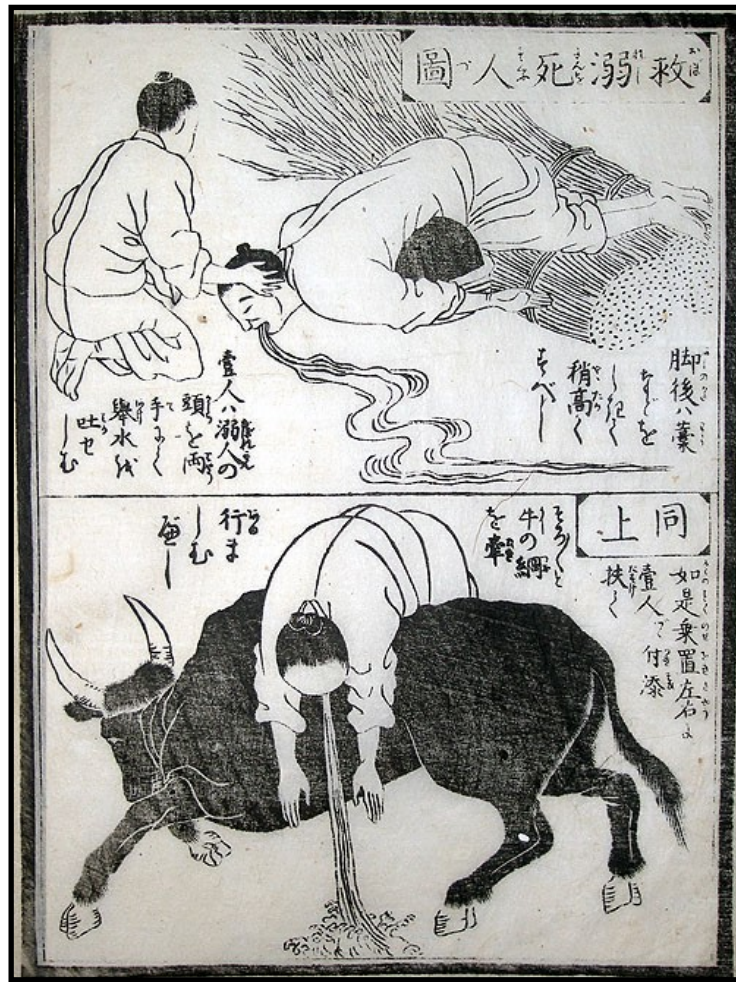 救溺死人圖
脚後ハ藁
などを
しき
稍高く
すべし
壹人ハ溺人の
頭を両
手にて
擧水を
吐せ
しむ
同上
如是乗置左右に
壹人づゝ付添
扶く
そろ〱と
牛の綱
を牽
行ま
しむ
べし